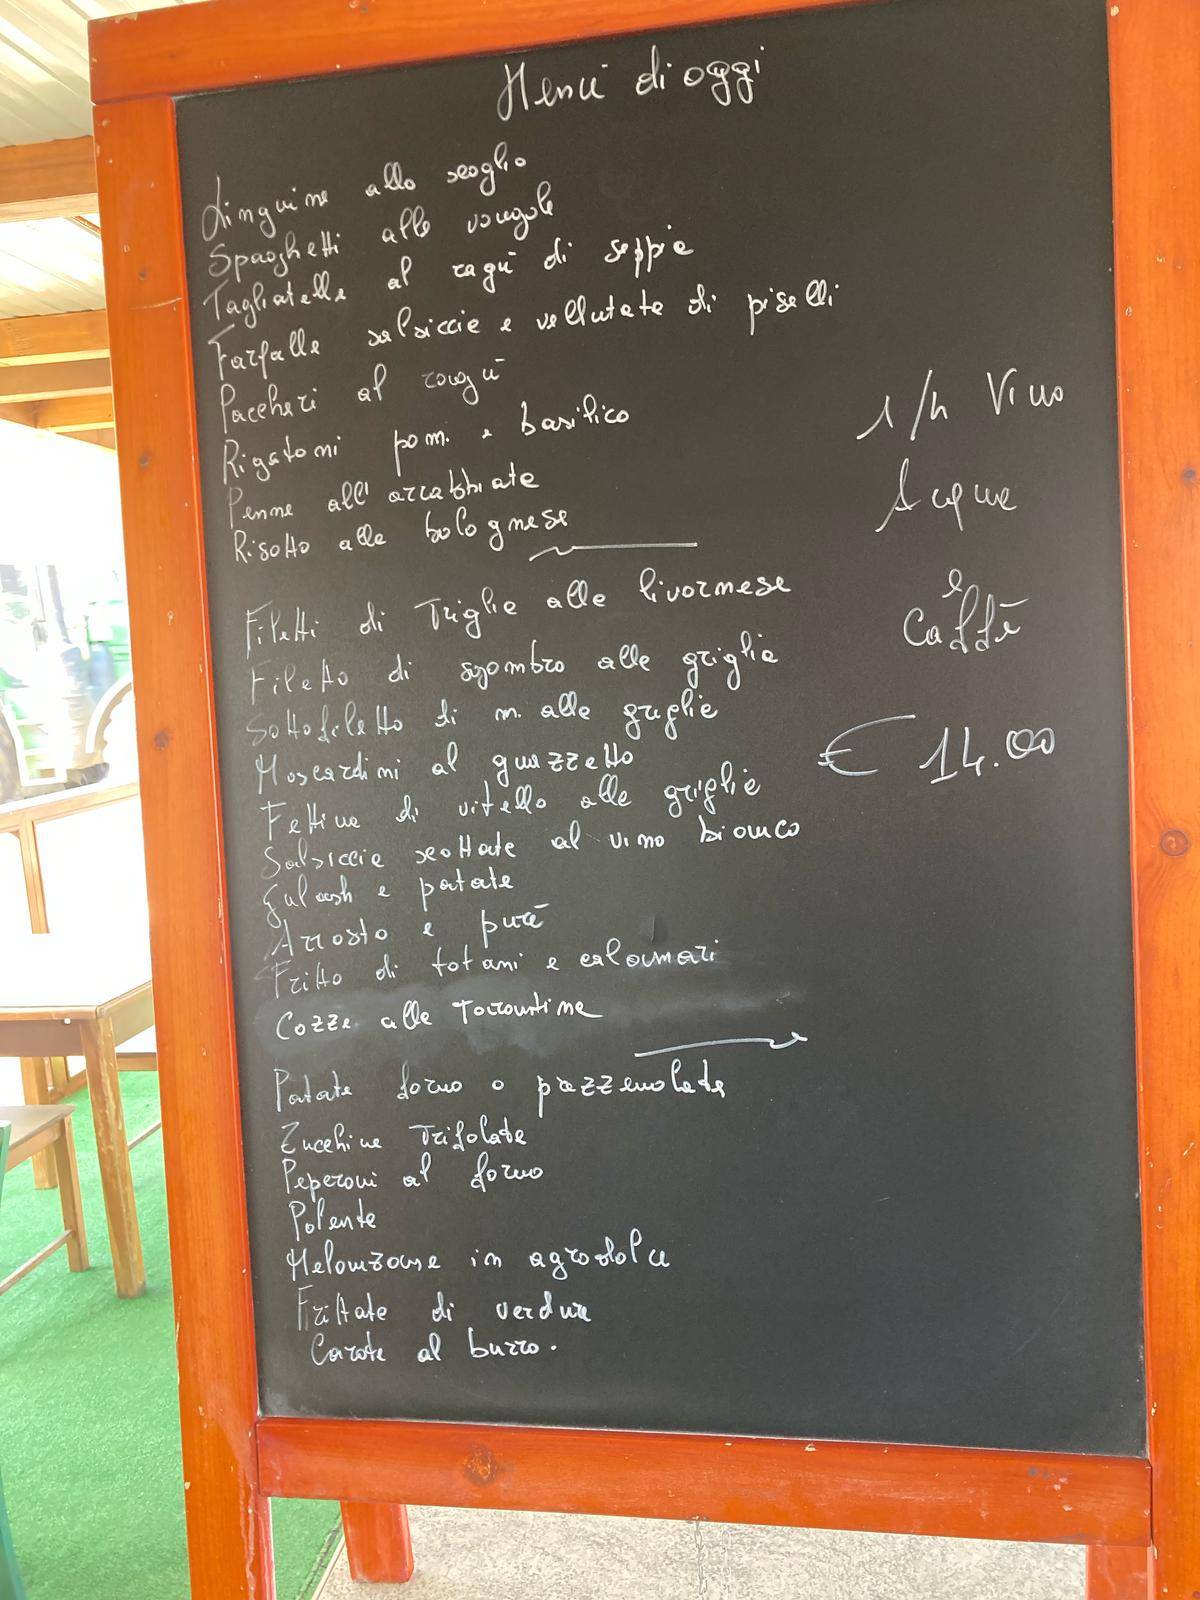 Menù di oggi
Linguine allo scoglio
Spaghetti alle vongole
Tagliatelle al ragù di seppie
Farfalle salsiccia e vellutata di piselli
Paccheri al ragù
Rigatoni pom. e basilico
Penne all'arrabbiata
Risotto alla bolognese
Filetti di Triglia alla livornese
Filetto di sgombro alla griglia
Sottofiletto di m. alla griglia
Moscardini al guazzetto
Fettina di vitello alla griglia
Salsiccia scottata al vino bianco
Gulash e patate
Arrosto e purè
Fritto di totani e calamari
Cozze alla Tarantina
Patate forno o prezzemolate
Zucchine Trifolate
Peperoni al forno
Polenta
Melanzane in agrodolce
Frittata di verdure
Carote al burro.
1/4 Vino
Acqua
e
Caffè
€ 14.00